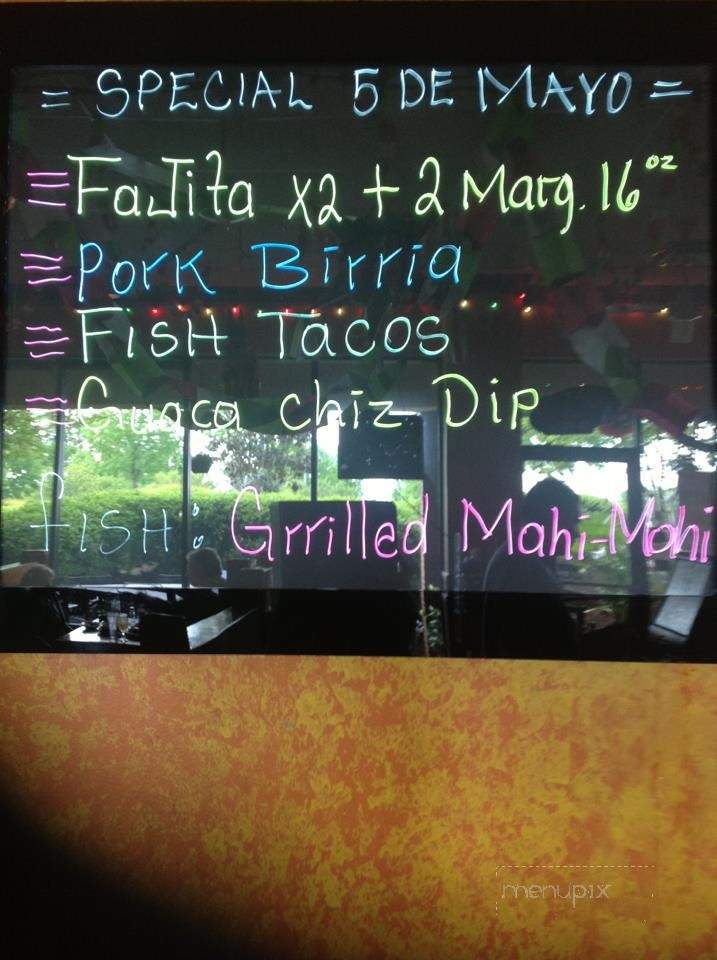 = SPECIAL 5 DE MAYO =
FaJita x2 + 2 Marg. 16 oz
Pork Birria
FISH Tacos
Guaca chiz Dip
fISH: Grrilled Mahi-Mahi
menupix